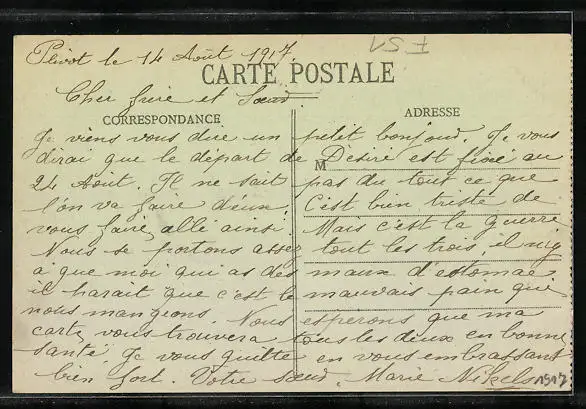 Pivot le 14 Août 1917.
FSA
CARTE POSTALE
Cher frere et Soeur
CORRESPONDANCE
ADRESSE
Je viens vous dire un petit bonjour. Je vous
dirai que le départ de Desire est fixé au
M
24 Août. Il ne sait pas du tout ce que
l'on va faire d'eux. C'est bien triste de
vous faire allé ainsi. Mais c'est la guerre
Nous se portons assez tout les trois, il n'iy
a que moi qui as des maux d'estomac.
il parait que c'est le mauvais pain que
nous mangeons. Nous esperons que ma
carte vous trouvera tous les deux en bonne
santé. Je vous quitte en vous embrassant
bien fort. Votre soeur. Marie Nikels
1917